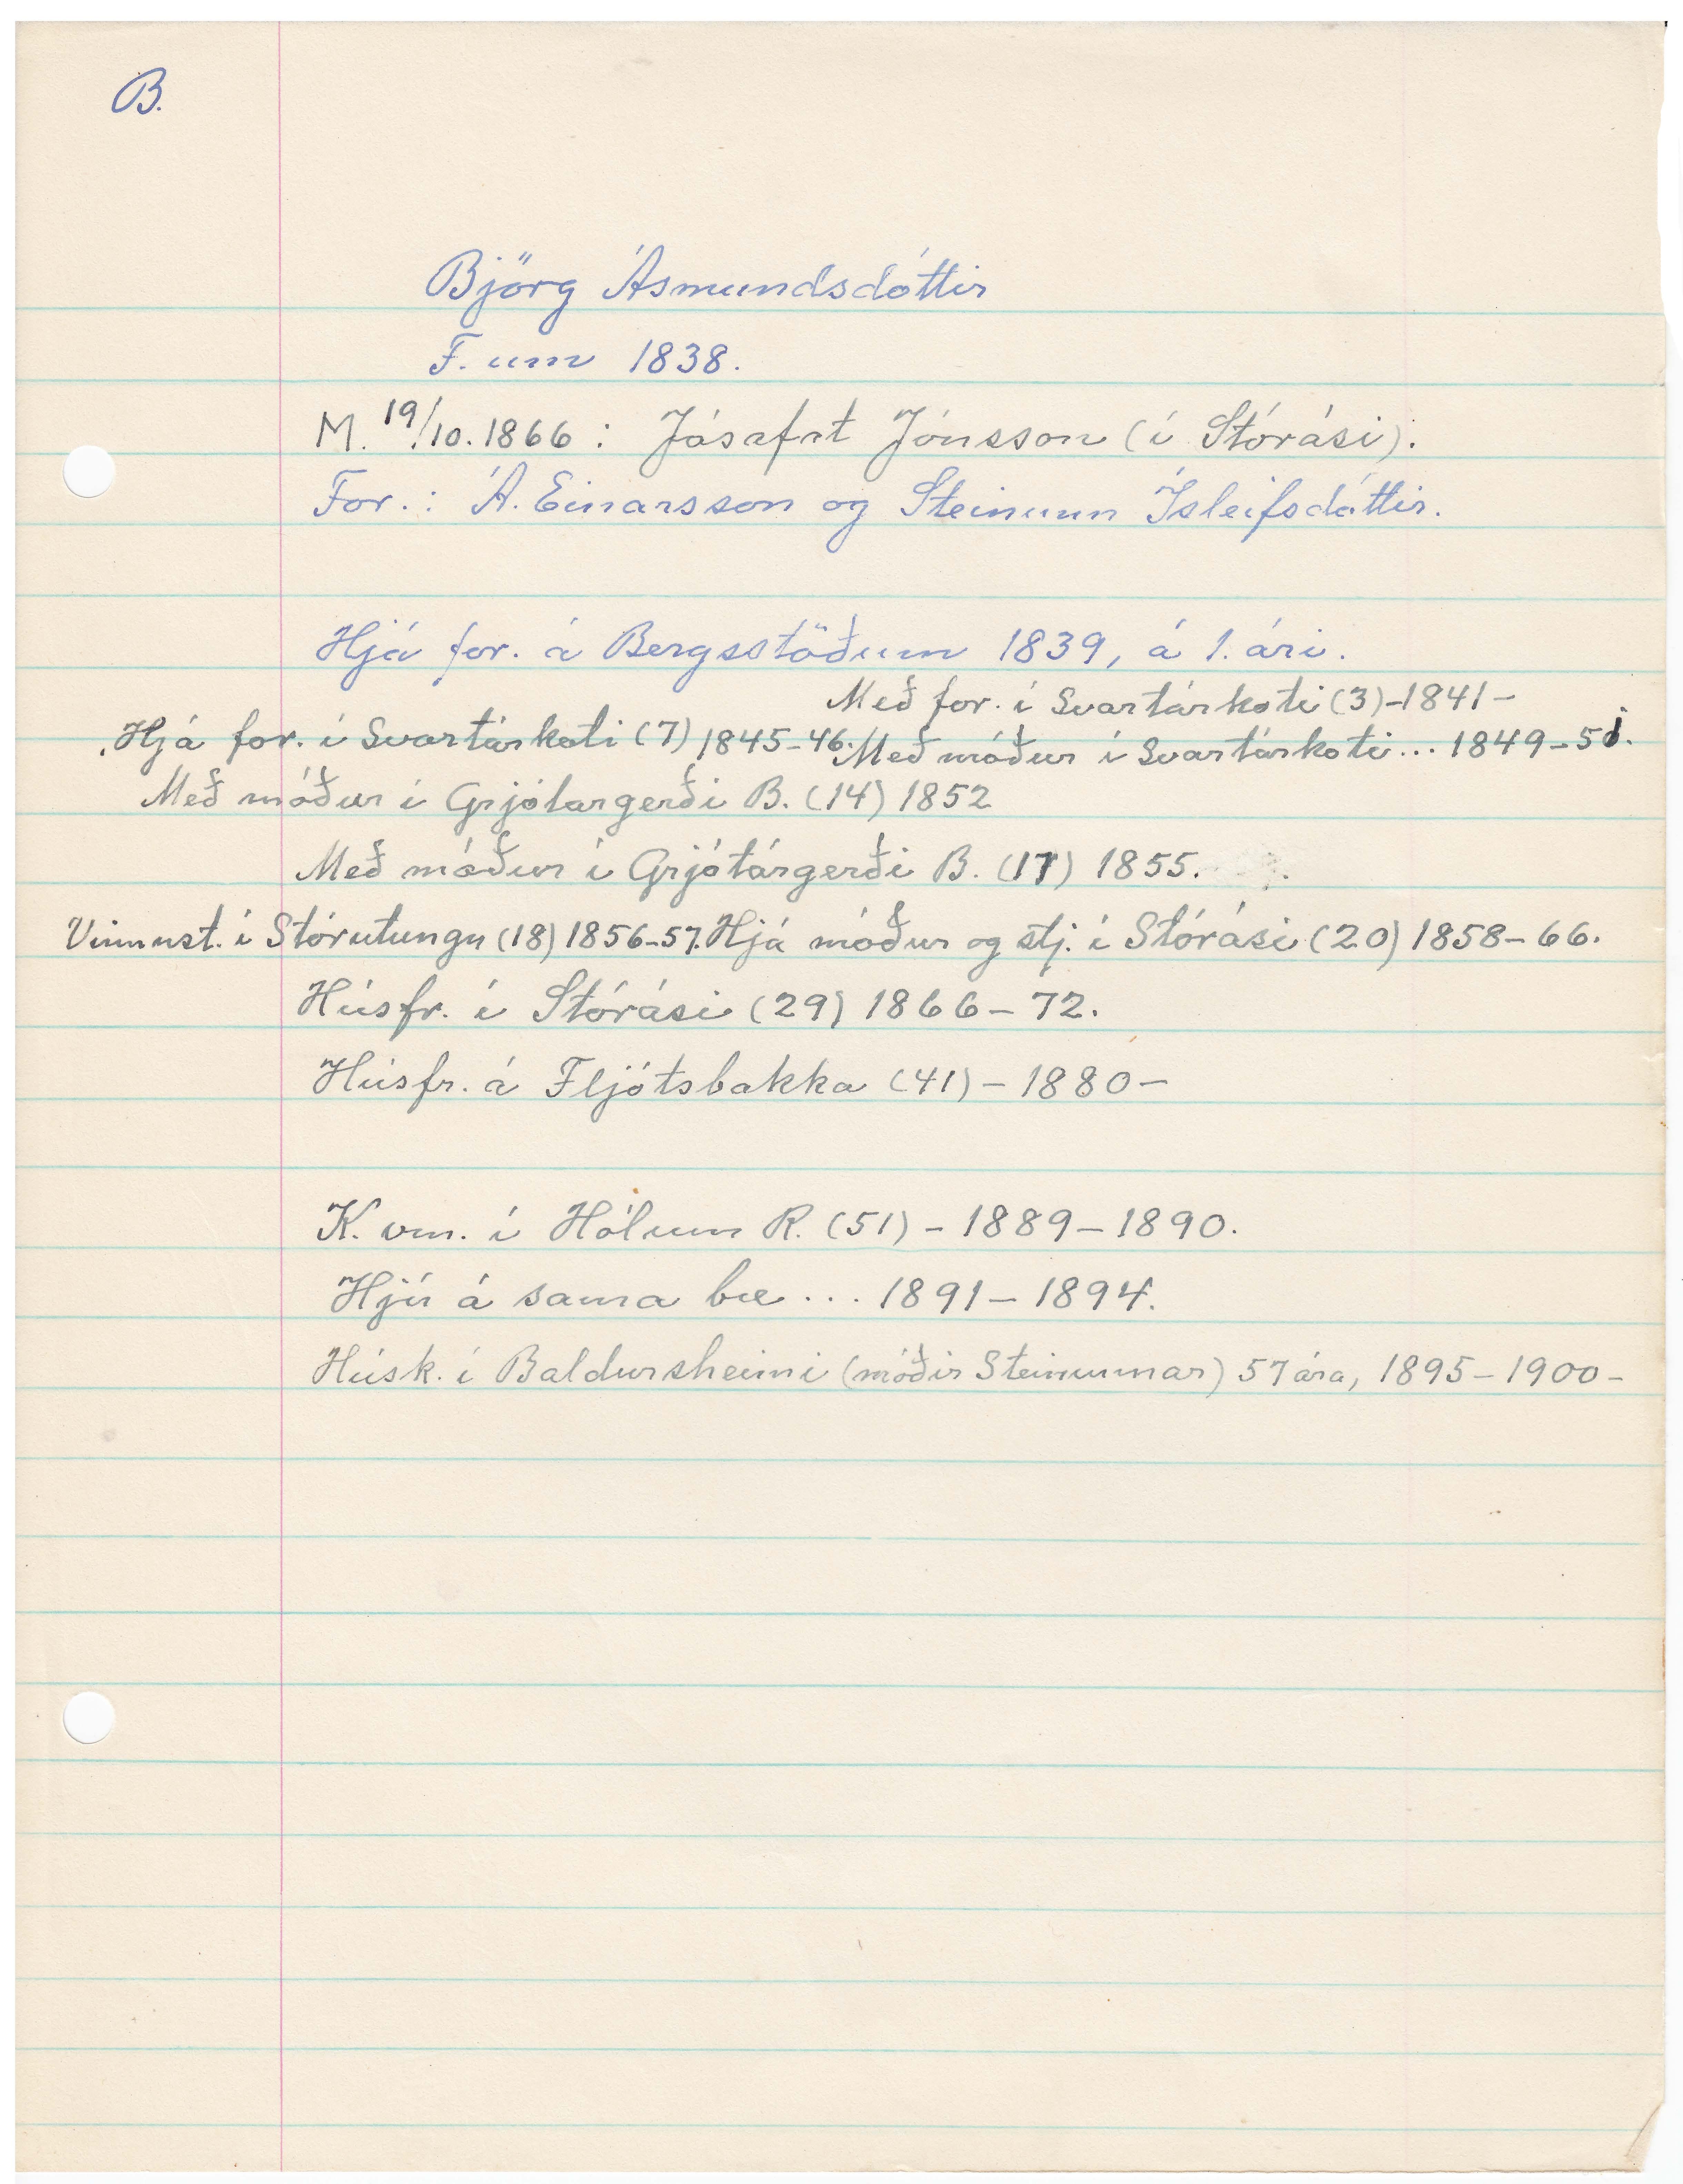 B.
Björg Ásmundsdóttir
F. um 1838.
M. 19/10. 1866 : Jósafat Jónsson (í Stórási).
For. : Á. Einarsson og Steinunn Ísleifsdóttir.
Hjá for. á Bergsstöðum 1839, á 1. ári.
Með for. í Svartárkoti (3) -1841-
Hjá for. í Svartárkoti (7) 1845-46. Með móður í Svartárkoti ... 1849-51.
Með móður í Grjótargerði B. (14) 1852
Með móður í Grjótárgerði B. (17) 1855.
Vinnust. í Stórutungu (18) 1856-57. Hjá móður og stj. í Stórási (20) 1858-66.
Húsfr. í Stórási (29) 1866-72.
Húsfr. á Fljótsbakka (41) - 1880-
K. vm. í Hólum R. (51) - 1889-1890.
Hjú á sama bæ ... 1891-1894.
Húsk. í Baldursheimi (móðir Steinunnar) 57 ára, 1895-1900-